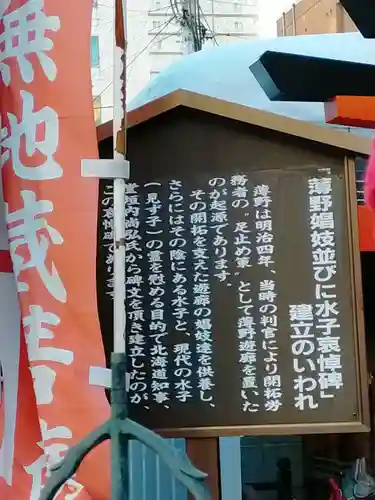 『薄野娼妓並びに水子哀悼碑』
建立のいわれ
薄野は明治四年、当時の判官により開拓労
務者の“足止め策”として薄野遊廓を置いた
のが起源であります。
その開拓を支えた遊廓の娼妓達を供養し、
さらにはその陰にある水子と、現代の水子
(見ず子)の霊を慰める目的で北海道知事、
堂垣内尚弘氏から碑文を頂き建立したのが、
この哀悼碑であり
無地蔵尊